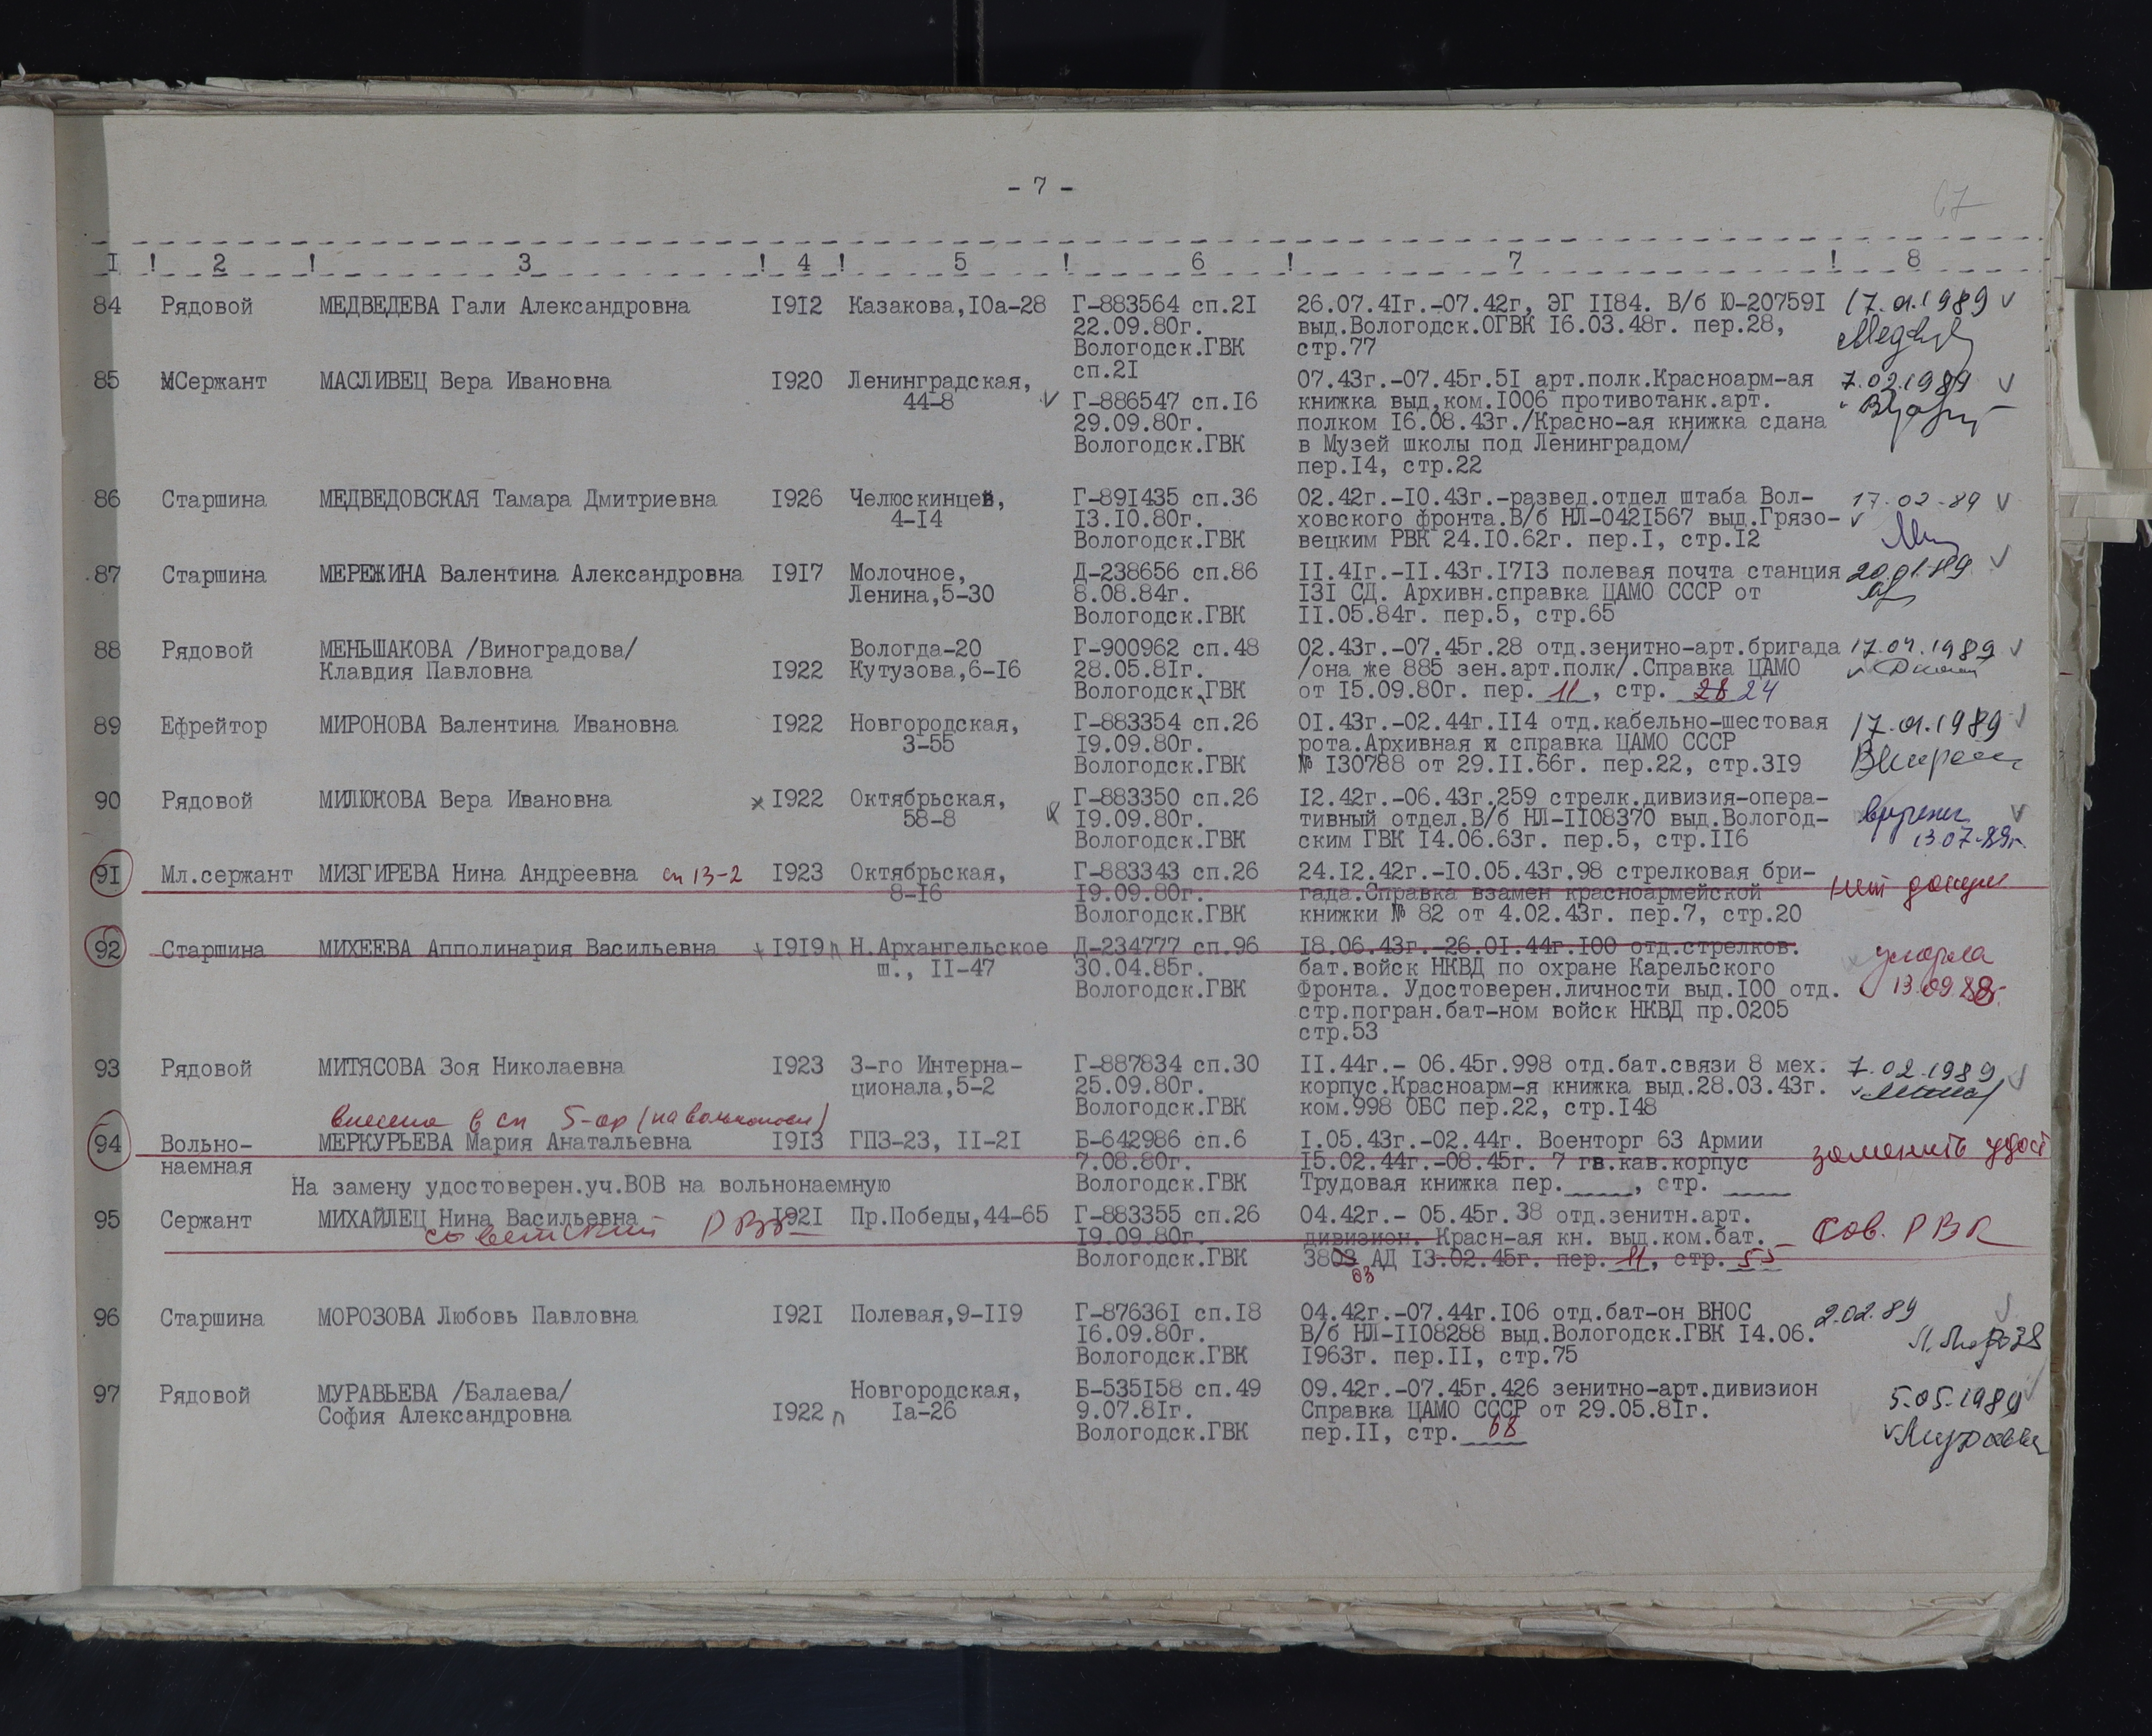 - 7 -
67
I ! 2 ! 3 ! 4 ! 5 ! 6 ! 7 ! 8
84 Рядовой МЕДВЕДЕВА Гали Александровна I9I2 Казакова,I0а-28 Г-883564 сп.2I 26.07.4Iг.-07.42г, ЭГ II84. В/б Ю-20759I 17.01.1989 v
22.09.80г. выд.Вологодск.ОГВК I6.03.48г. пер.28,
Вологодск.ГВК стр.77
сп.2I
85 МСержант МАСЛИВЕЦ Вера Ивановна I920 Ленинградская, 07.43г.-07.45г.5I арт.полк.Красноарм-ая 7.02.1989 v
44-8 v Г-886547 сп.I6 книжка выд.ком.I006 противотанк.арт.
29.09.80г. полком I6.08.43г./Красно-ая книжка сдана
Вологодск.ГВК в Музей школы под Ленинградом/
пер.I4, стр.22
86 Старшина МЕДВЕДОВСКАЯ Тамара Дмитриевна I926 Челюскинцев, Г-89I435 сп.36 02.42г.-I0.43г.-развед.отдел штаба Вол- 17.02-89 v
4-I4 I3.I0.80г. ховского фронта.В/б НЛ-042I567 выд.Грязо- v
Вологодск.ГВК вецким РВК 24.I0.62г. пер.I, стр.I2
87 Старшина МЕРЕЖИНА Валентина Александровна I9I7 Молочное, Д-238656 сп.86 II.4Iг.-II.43г.I7I3 полевая почта станция 20.01.89 v
Ленина,5-30 8.08.84г. I3I СД. Архивн.справка ЦАМО СССР от
Вологодск.ГВК II.05.84г. пер.5, стр.65
88 Рядовой МЕНЬШАКОВА /Виноградова/ Вологда-20 Г-900962 сп.48 02.43г.-07.45г.28 отд.зенитно-арт.бригада 17.04.1989 v
Клавдия Павловна I922 Кутузова,6-I6 28.05.8Iг. /она же 885 зен.арт.полк/.Справка ЦАМО v
Вологодск.ГВК от I5.09.80г. пер. 11, стр. 28 24
89 Ефрейтор МИРОНОВА Валентина Ивановна I922 Новгородская, Г-883354 сп.26 0I.43г.-02.44г.II4 отд.кабельно-шестовая 17.01.1989 v
3-55 I9.09.80г. рота.Архивная и справка ЦАМО СССР
Вологодск.ГВК № I30788 от 29.II.66г. пер.22, стр.3I9
90 Рядовой МИЛЮКОВА Вера Ивановна х I922 Октябрьская, Г-883350 сп.26 I2.42г.-06.43г.259 стрелк.дивизия-опера-
58-8 I9.09.80г. тивный отдел.В/б НЛ-II08370 выд.Вологод- v
Вологодск.ГВК ским ГВК I4.06.63г. пер.5, стр.II6 13.07.89г.
9I Мл.сержант МИЗГИРЕВА Нина Андреевна сп 13-2 I923 Октябрьская, Г-883343 сп.26 24.I2.42г.-I0.05.43г.98 стрелковая бри-
8-I6 I9.09.80г. гада.Справка взамен красноармейской нет
Вологодск.ГВК книжки № 82 от 4.02.43г. пер.7, стр.20
92 Старшина МИХЕЕВА Апполинария Васильевна I9I9 п Н.Архангельское Д-234777 сп.96 I8.06.43г.-26.0I.44г.I00 отд.стрелков. умерла
ш., II-47 30.04.85г. бат.войск НКВД по охране Карельского
Вологодск.ГВК Фронта. Удостоверен.личности выд.I00 отд. 13.09.88г.
стр.погран.бат-ном войск НКВД пр.0205
стр.53
93 Рядовой МИТЯСОВА Зоя Николаевна I923 3-го Интерна- Г-887834 сп.30 II.44г.- 06.45г.998 отд.бат.связи 8 мех. 7.02.1989 v
ционала,5-2 25.09.80г. корпус.Красноарм-я книжка выд.28.03.43г. v
Вологодск.ГВК ком.998 ОБС пер.22, стр.I48
внесена в сп 5-ор
94 Вольно- МЕРКУРЬЕВА Мария Анатальевна I9I3 ГПЗ-23, II-2I Б-642986 сп.6 I.05.43г.-02.44г. Военторг 63 Армии заменить удост
наемная 7.08.80г. I5.02.44г.-08.45г. 7 гв.кав.корпус
На замену удостоверен.уч.ВОВ на вольнонаемную Вологодск.ГВК Трудовая книжка пер.____, стр. ____
95 Сержант МИХАЙЛЕЦ Нина Васильевна I92I Пр.Победы,44-65 Г-883355 сп.26 04.42г.- 05.45г.38 отд.зенитн.арт.
советский РВК I9.09.80г. дивизион. Красн-ая кн. выд.ком.бат. Сов. РВК
Вологодск.ГВК 3803 АД I3.02.45г. пер. 11, стр. 55
03
96 Старшина МОРОЗОВА Любовь Павловна I92I Полевая,9-II9 Г-87636I сп.I8 04.42г.-07.44г.I06 отд.бат-он ВНОС 2.02.89 v
I6.09.80г. В/б НЛ-II08288 выд.Вологодск.ГВК I4.06.
Вологодск.ГВК I963г. пер.II, стр.75
97 Рядовой МУРАВЬЕВА /Балаева/ Новгородская, Б-535I58 сп.49 09.42г.-07.45г.426 зенитно-арт.дивизион 5.05.1989 v
София Александровна I922 п Iа-26 9.07.8Iг. Справка ЦАМО СССР от 29.05.8Iг.
Вологодск.ГВК пер.II, стр. 68